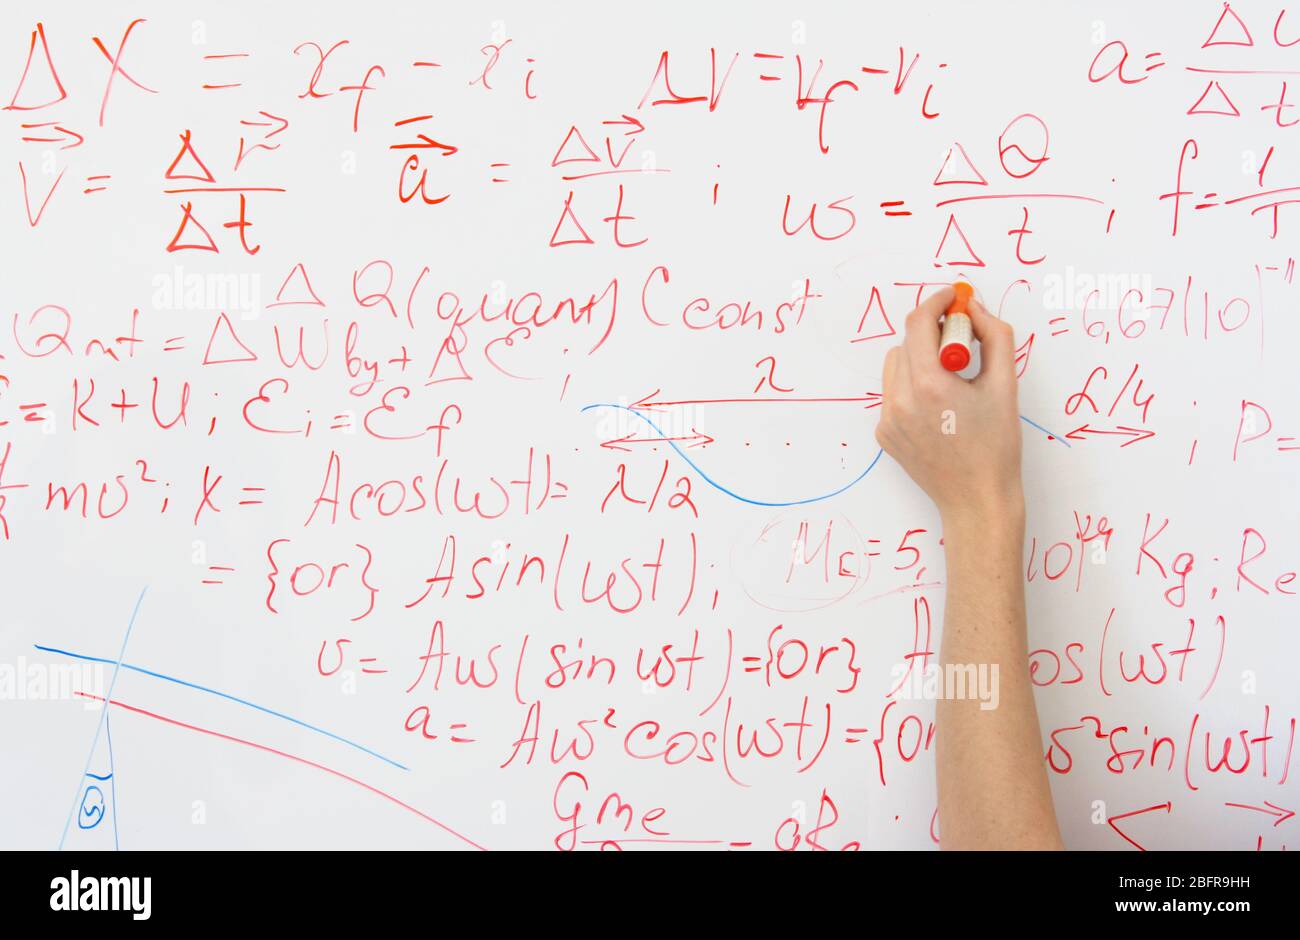 ΔX = x_f - x_i   ΔV = V_f - V_i   a = Δ / Δt
V = Δr / Δt   a = Δv / Δt ;   ω = ΔΘ / Δt ;   f = 1/T
ΔQ (quant) (const   Δ   = 6,67(10)^-11
Q = ΔW by + ΔƐ ;   λ
= K + U ; Ɛi = Ɛf   L/4 ; P =
mv² ; X = A cos(ωt) =   λ/2
= {or} A sin(ωt) ;   M_E = 5,   10   Kg ; Re
v = Aω(sin ωt) = {or} A   os(ωt)
a = Aω² cos(ωt) = {or   ω² sin(ωt)
Θ
Gme
alamy
Image ID: 2BFR9HH
www.alamy.com